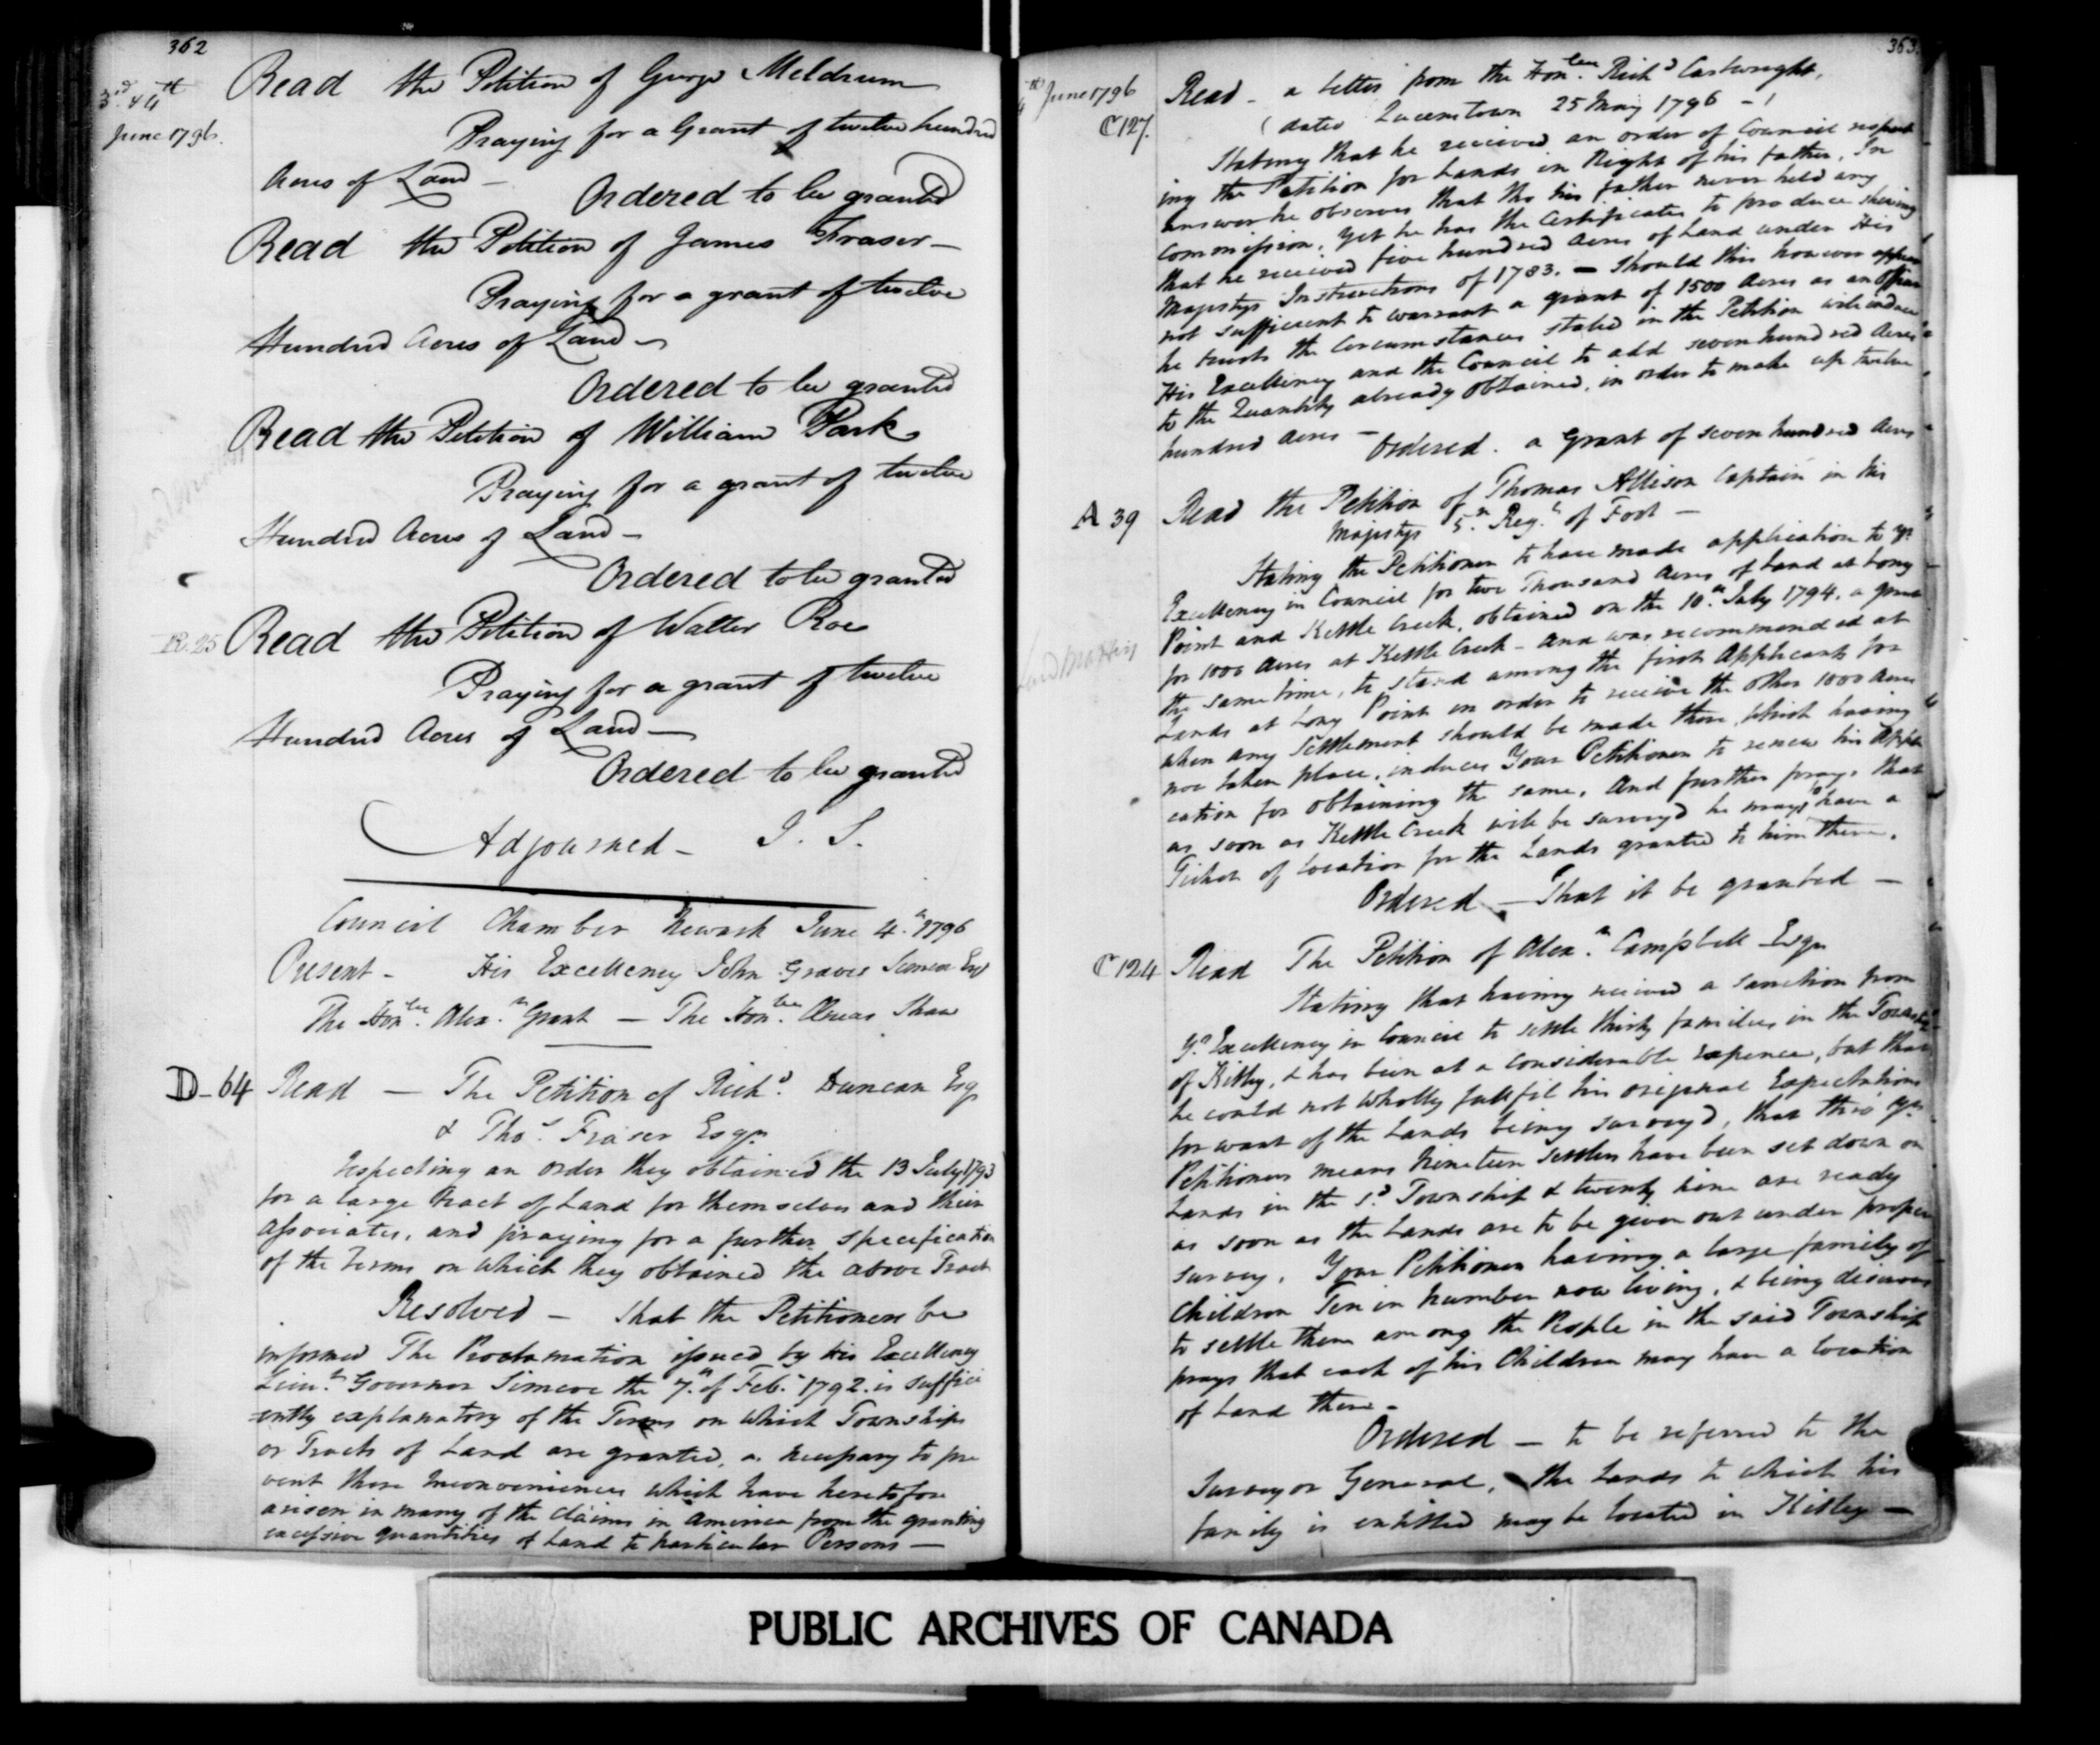 362
3d & 4th
June 1796.
Read the Petition of George Meldrum
Praying for a Grant of twelve hundred
Acres of Land —
Ordered to be granted
Read the Petition of James Fraser —
Praying for a grant of twelve
Hundred Acres of Land —
Ordered to be granted
Read the Petition of William Park
Praying for a grant of twelve
Hundred Acres of Land —
Ordered to be granted
R. 25 Read the Petition of Walter Roe
Praying for a grant of twelve
Hundred Acres of Land —
Ordered to be granted
Adjourned — J. S.
Council Chamber Newark June 4th 1796
Present — His Excellency John Graves Simcoe Esq
The Honble Alexr Grant — The Honble Æneas Shaw
D-64 Read — The Petition of Richd Duncan Esqr
& Thos Fraser Esqr
respecting an order they obtained the 13 July 1793
for a large tract of Land for themselves and their
associates, and praying for a further specification
of the terms on which they obtained the above Tract
Resolved — that the Petitioners be
informed The Proclamation issued by his Excellency
Lieut Governor Simcoe the 7th of Feby 1792 is suffici
=ently explanatory of the Terms on which Townships
or Tracts of Land are granted, as necessary to pre
vent those inconveniences which have heretofore
arisen in many of the claims in America from the granting
excessive quantities of Land to particular Persons —
363
4th June 1796
C 127. Read — a letter from the Honble Richd Cartwright,
(dated Queenstown 25 May 1796 —)
Stating that he received an order of Council respect
ing the Petition for Lands in Right of his father, In
answer he observes that tho his father never held any
Commission, yet he has the Certificates to produce shewing
that he received five hundred Acres of Land under His
Majestys Instructions of 1783. — Should this however appear
not sufficient to warrant a grant of 1500 Acres as an Officer
he trusts the Circumstances stated in the Petition will induce
His Excellency and the Council to add seven hundred Acres
to the Quantity already obtained, in order to make up twelve
hundred acres —
Ordered. a Grant of seven hundred Acres
A 39 Read the Petition of Thomas Allison Captain in his
Majestys 5th Regt of Foot —
Stating the Petitioner to have made application to yr
Excellency in Council for two Thousand Acres of Land at Long
Point and Kettle Creek, obtained on the 10th July 1794, a grant
for 1000 Acres at Kettle Creek — and was recommended at
the same time, to stand among the first Applicants for
Lands at Long Point in order to receive the other 1000 Acres
when any Settlement should be made there, which having
now taken place, induces Your Petitioner to renew his Appli
cation for obtaining the same, And further prays that
as soon as Kettle Creek will be survey'd he may have a
Ticket of Location for the Lands granted to him there.
Ordered — That it be granted —
C 124 Read The Petition of Alexr Campbell Esqr
Stating that having received a sanction from
Yr Excellency in Council to settle thirty families in the Township
of Kitley, & has been at a considerable expence, but that
he could not wholly fullfil his original Expectations
for want of the Lands being survey'd, that thro' yr
Petitioners means Nineteen Settlers have been set down on
Lands in the sd Township & twenty nine are ready
as soon as the Lands are to be given out under proper
survey. Your Petitioner having a large family of
Children Ten in number now living, & being desirous
to settle them among the People in the said Township
prays that each of his Children may have a location
of Land there —
Ordered — to be referred to the
Surveyor General, the Lands to which his
family is entitled may be located in Kitley —
PUBLIC ARCHIVES OF CANADA